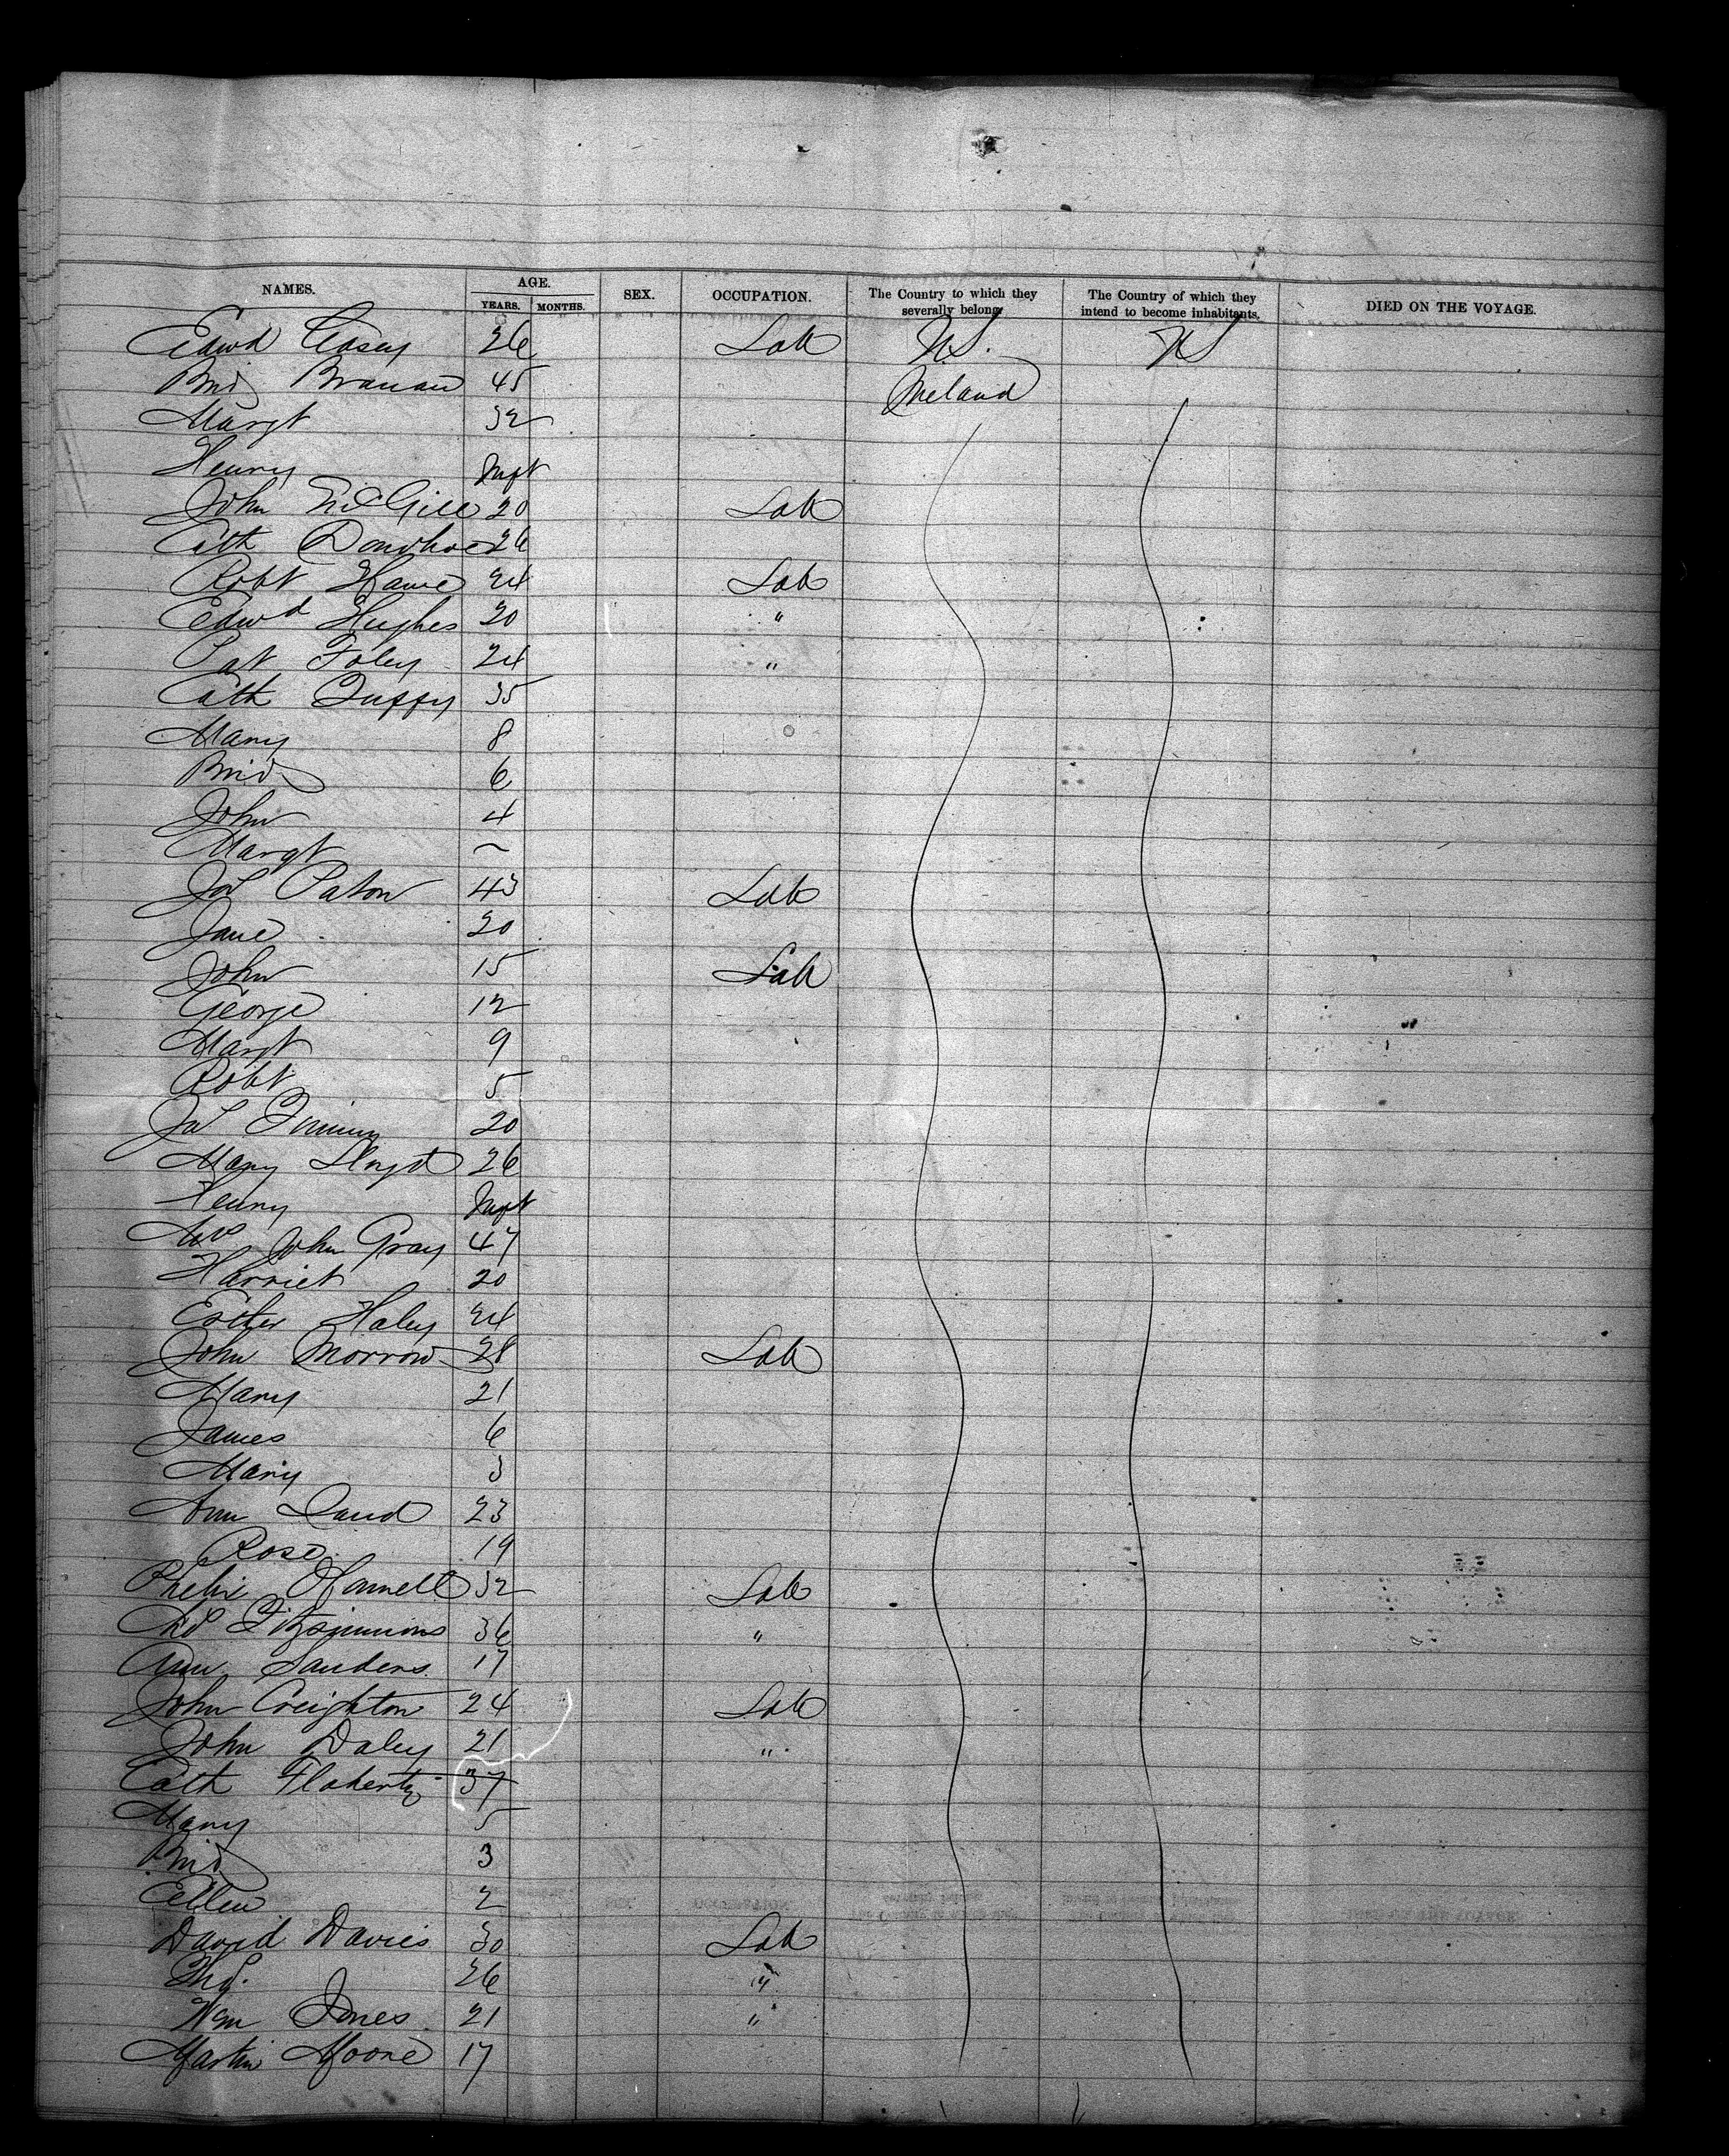 NAMES. AGE. SEX. OCCUPATION. The Country to which they severally belong. The Country of which they intend to become inhabitants. DIED ON THE VOYAGE.
YEARS. MONTHS.
Edwd Casey 26 Lab U.S. US
Brid Branan 45 Ireland
Margt 32
Henry Inft
John McGill 20 Lab
Cath Donohoe 26
Robt Hame 24 Lab
Edwd Hughes 20 "
Pat Foley 24 "
Cath Duffy 35
Mary 8
Brid 6
John 4
Margt ~
Jos Paton 43 Lab
Jane 20
John 15 Lab
George 12
Margt 9
Robt 5
Jas 20
Mary Lloyd 26
Henry Inft
Mrs John Gray 47
Harriet 20
Esther Haley 24
John Morrow 28 Lab
Mary 21
James 6
Mary 3
Ann Land 23
Rose 19
Hamell 32 Lab
Fitzsimmons 36 "
Ann Sanders 17
John Creighton 24 Lab
John Daley 21 "
Cath Flaherty 37
Mary 5
Brid 3
Ellen 2
David Davies 30 Lab
Thos. 26 "
Wm Jones 21 "
Martin Moore 17